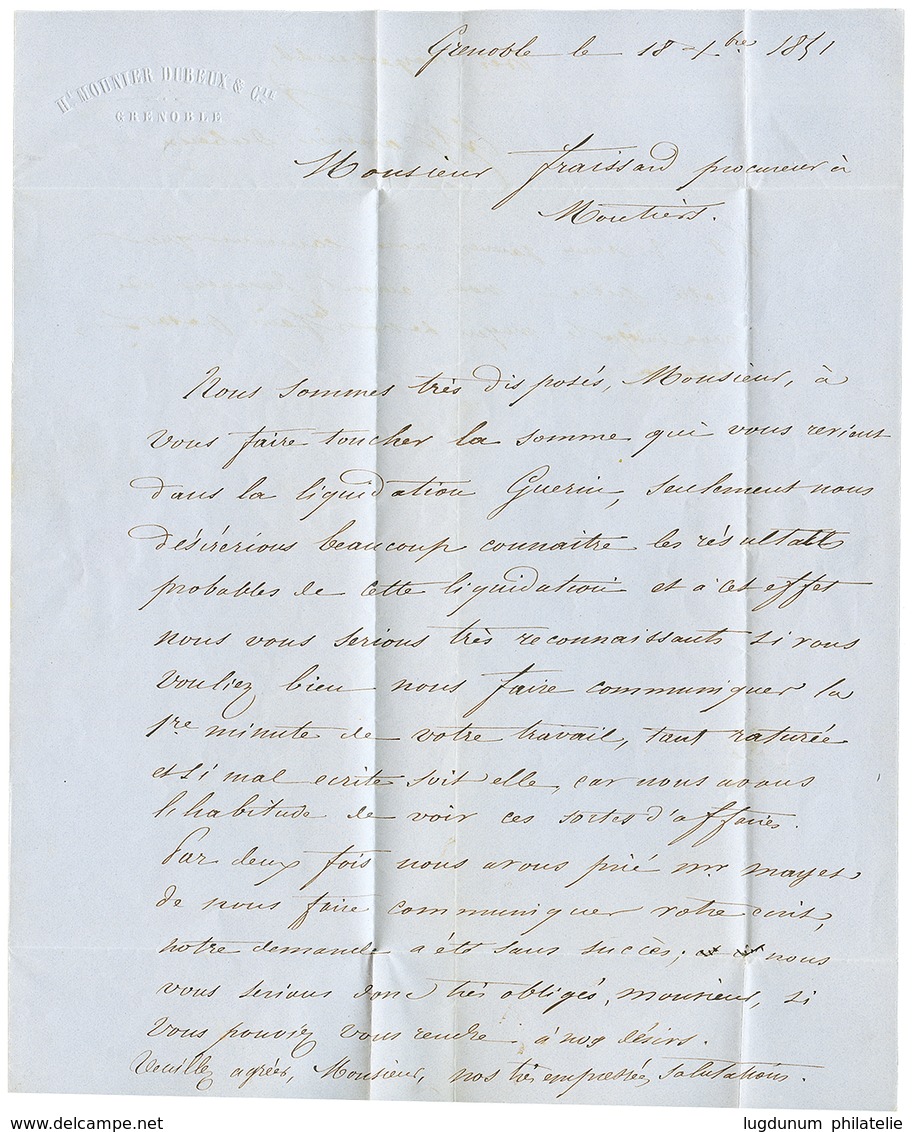 Grenoble le 18 7bre 1851
Hri MOUNIER DUBEUX & Cie
GRENOBLE
Monsieur Fraissard procureur à
Moutiers.
Nous sommes très disposés, Monsieur, à
vous faire toucher la somme qui vous revient
dans la liquidation Guerin, seulement nous
désirerions beaucoup connaitre les résultats
probables de cette liquidation et à cet effet
nous vous serions très reconnaissants si vous
vouliez bien nous faire communiquer la
1re minute de votre travail, tant raturée
et si mal ecrite soit elle, car nous avons
l'habitude de voir ces sortes d'affaires.
Par deux fois nous avons prié mr mayet
de nous faire communiquer votre écrit,
notre demande a été sans succès; nous
vous serions donc très obligés, monsieur, si
vous pouviez vous rendre à nos désirs.
Veuillez agréer, Monsieur, nos très empressées salutations.
lugdunum philatelie